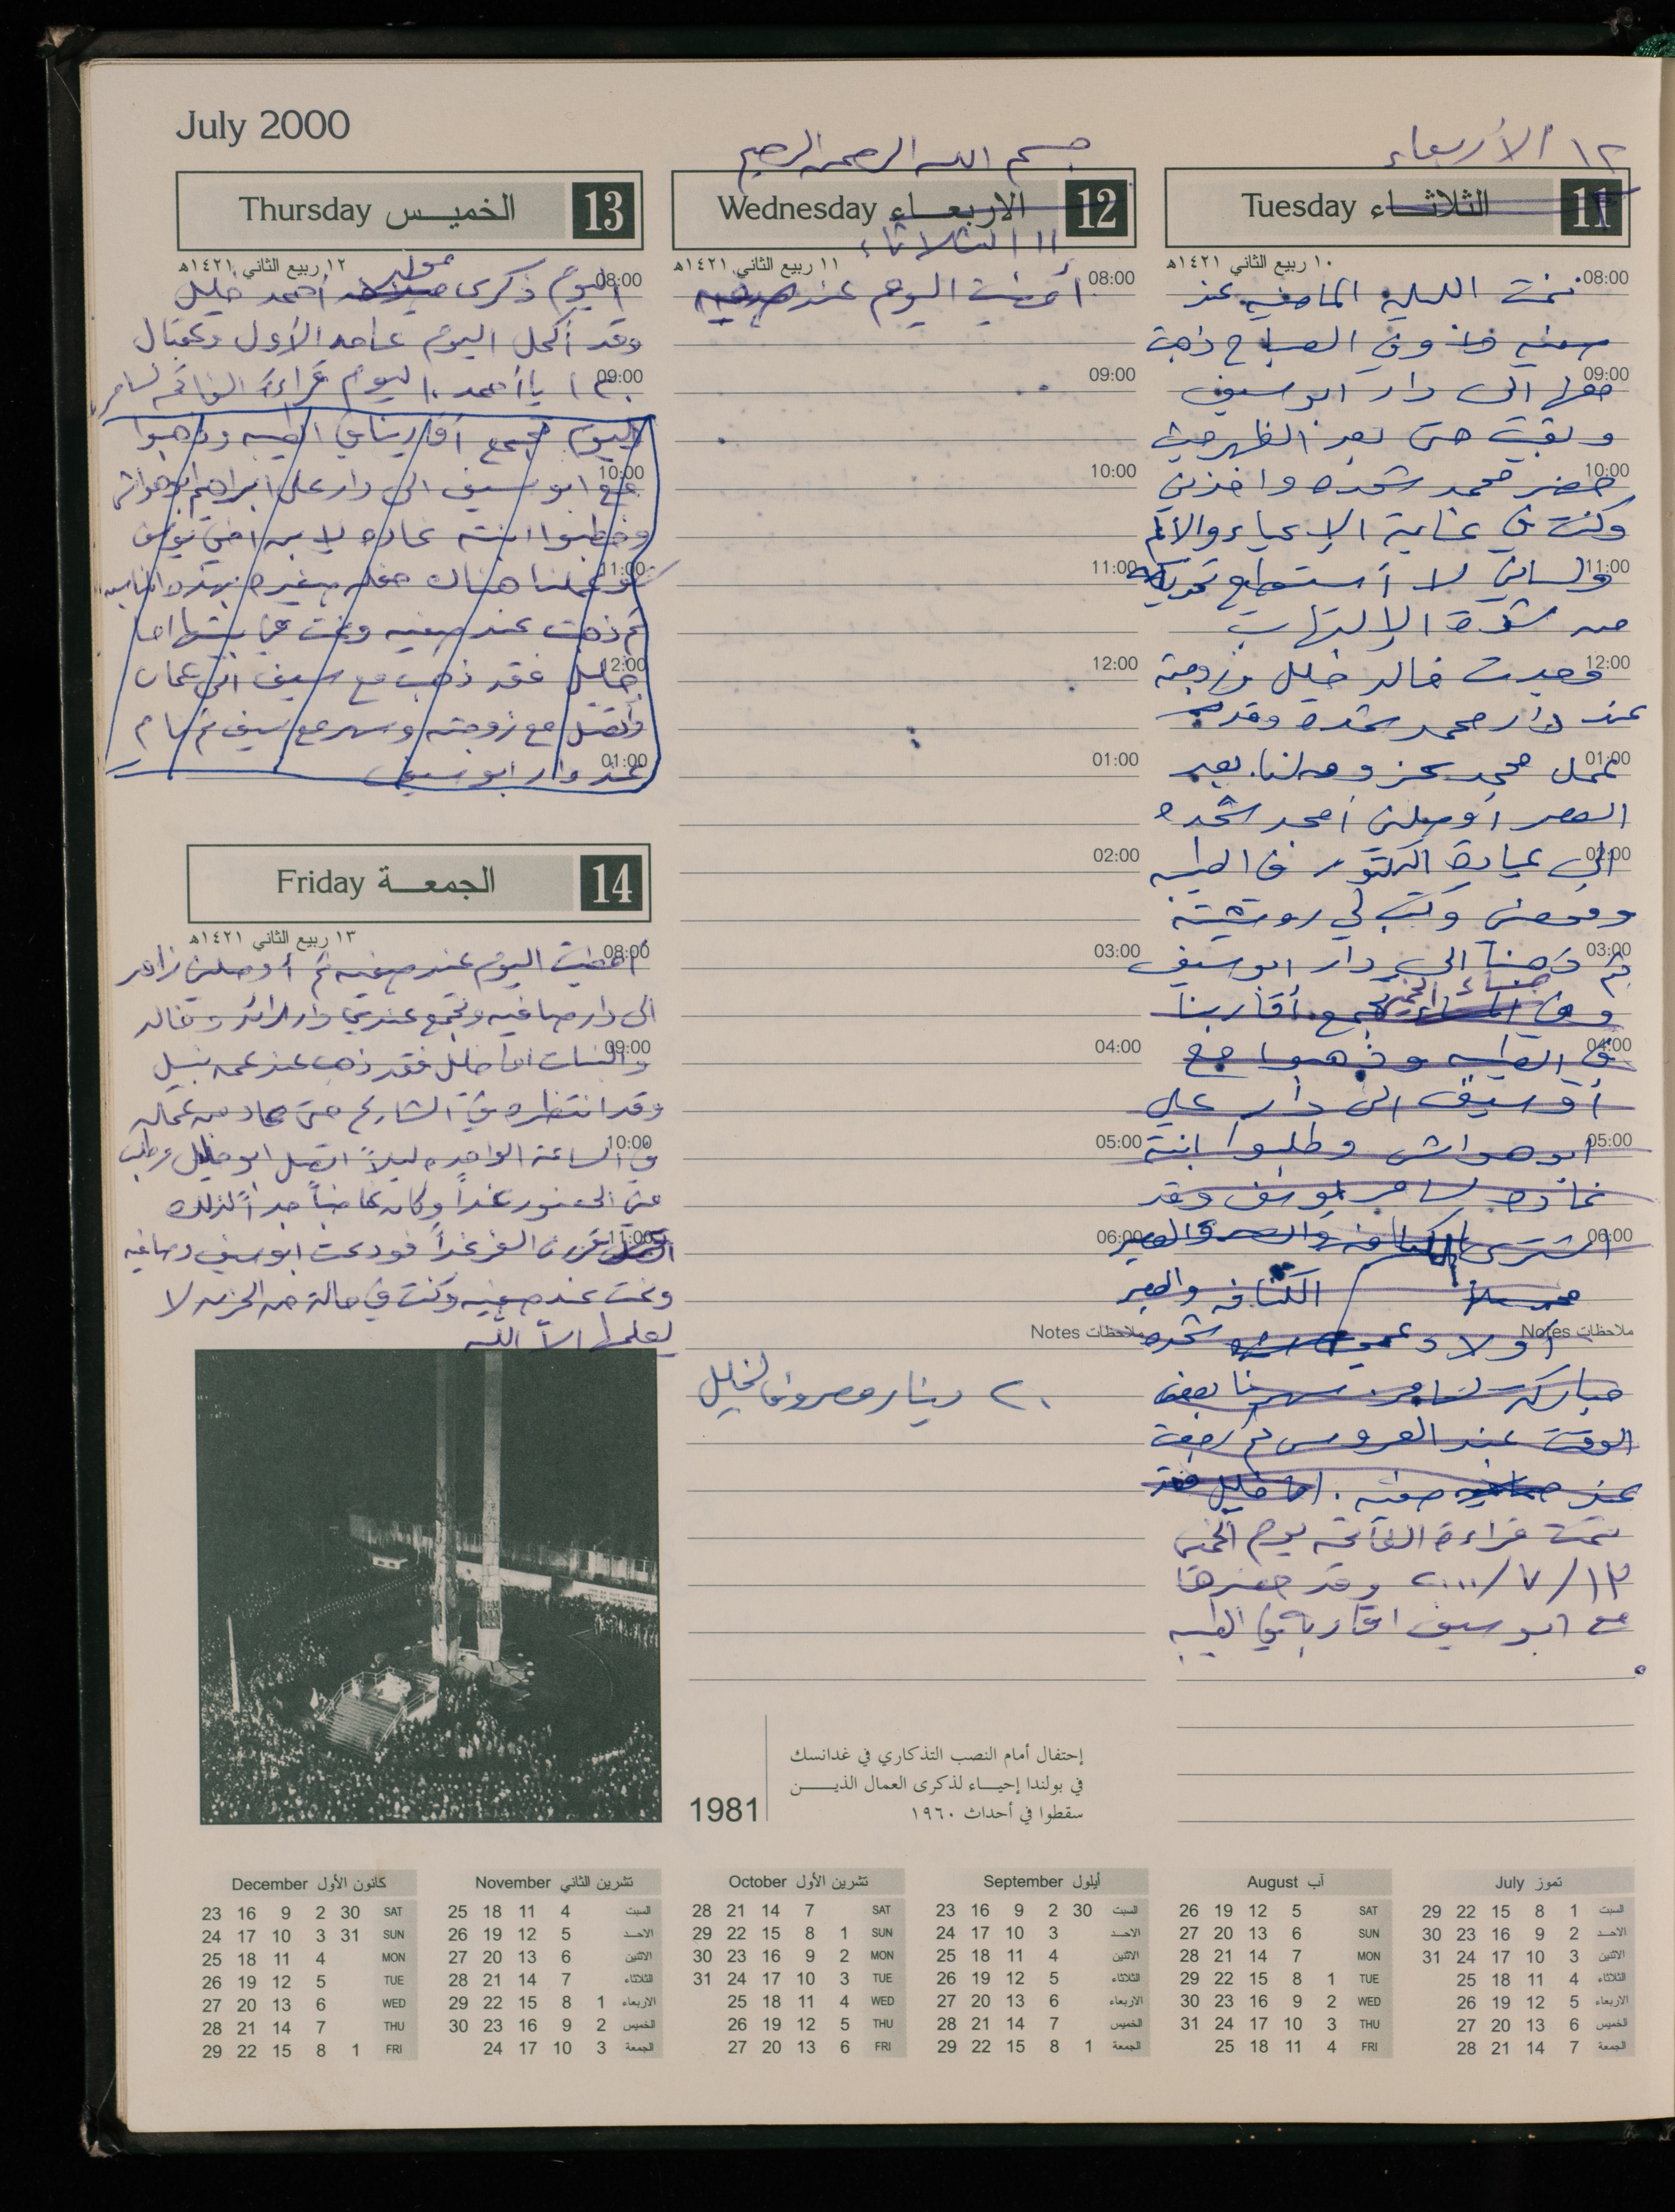 July 2000
١٢ الأربعاء
11 الثلاثاء Tuesday
١٠ ربيع الثاني ١٤٢١هـ
08:00
نمت الليلة الماضيه عند
صفيه وفي الصباح ذهبت
09:00
معها الى دار ابو سيف
وبقيت حتى بعد الظهر حيث
10:00
حضر محمد شحده واخذني
وكنت في غاية الإعياء والألم
11:00
ولساني لا أستطيع تحريكه
من شدة الإلتهاب
12:00
فوجدت خالد خليل وزوجته
عند دار محمد شحده وقد
01:00
عمل محمد عزومه لنا. بعد
العصر أوصلني أمجد شحده
02:00
الى عيادة الدكتور في الطيبه
وفحصني وكتب لي روشيتة
03:00
ثم ذهبنا الى دار ابو سيف
وفي المساء مساء الخميس تجمع أقاربنا
04:00
في الطيبه وذهبوا مع
أبو سيف الى دار علي
05:00
ابو هواش وطلبوا ابنته
غاده لسامر يوسف وقد
06:00
اشترى الكنافه والعصير
الكنافه والعصير
ملاحظات Notes
أولاد شحده
مباركه لسامر. سهرنا بعض
الوقت عند العروس ثم رجعت
عند صافيه صفيه. اما خليل فقد
تمت قراءة الفاتحه يوم الخميس
١٣/٧/٢٠٠٠ وقد حضرها
مع ابو سيف اقاربه في الطيبه
بسم الله الرحمن الرحيم
12 الاربعاء Wednesday
١١ الثلاثاء
١١ ربيع الثاني ١٤٢١هـ
08:00
أمضيت اليوم عند صفيه
09:00
10:00
11:00
12:00
01:00
02:00
03:00
04:00
05:00
06:00
ملاحظات Notes
٢٠ دينار مصروف لخليل
13 الخميس Thursday
١٢ ربيع الثاني ١٤٢١هـ
08:00
اليوم ذكرى ميلاد مولد أحمد خليل
وقد أكمل اليوم عامه الأول وعقبال
09:00
١٢٠ يا أحمد. اليوم قراءة الفاتحه لسامر
اليوم تجمع أقاربنا في الطيبه وذهبوا
10:00
مع ابو سيف الى دار علي ابراهيم ابو هواش
وخطبوا ابنته غاده لابن اخي يوسف
11:00
وعملنا هناك حفله صغيره بهذه المناسبه
ثم ذهبت عند صفيه ونمت في بيتها اما
12:00
خليل فقد ذهب مع سيف الى عمان
واتصل مع زوجته وسهر مع سيف ثم نام
01:00
عند دار ابو سيف
14 الجمعة Friday
١٣ ربيع الثاني ١٤٢١هـ
08:00
أمضيت اليوم عند صفيه ثم أوصلني زاهر
الى دار صافيه وتجمع عندي دار الرائد وخالد
09:00
والبنات اما خليل فقد ذهب عند عمه نبيل
وقد انتظره في الشارع حتى عاد من عمله
10:00
في الساعة الواحده ليلاً اتصل ابو خليل وطلب
مني الحضور غداً وكان غاضباً جداً لذلك
11:00
قررنا السفر غداً فودعت ابو سيف وصافيه
ونمت عند صفيه وكنت في حالة من الحزن لا
يعلمها الا الله
1981
إحتفال أمام النصب التذكاري في غدانسك
في بولندا إحيـــاء لذكرى العمال الذيـــن
سقطوا في أحداث ١٩٦٠
تموز July
29 22 15 8 1 السبت
30 23 16 9 2 الاحد
31 24 17 10 3 الاثنين
25 18 11 4 الثلاثاء
26 19 12 5 الاربعاء
27 20 13 6 الخميس
28 21 14 7 الجمعة
آب August
26 19 12 5 SAT
27 20 13 6 SUN
28 21 14 7 MON
29 22 15 8 1 TUE
30 23 16 9 2 WED
31 24 17 10 3 THU
25 18 11 4 FRI
أيلول September
23 16 9 2 30 السبت
24 17 10 3 الاحد
25 18 11 4 الاثنين
26 19 12 5 الثلاثاء
27 20 13 6 الاربعاء
28 21 14 7 الخميس
29 22 15 8 1 الجمعة
تشرين الأول October
28 21 14 7 SAT
29 22 15 8 1 SUN
30 23 16 9 2 MON
31 24 17 10 3 TUE
25 18 11 4 WED
26 19 12 5 THU
27 20 13 6 FRI
تشرين الثاني November
25 18 11 4 السبت
26 19 12 5 الاحد
27 20 13 6 الاثنين
28 21 14 7 الثلاثاء
29 22 15 8 1 الاربعاء
30 23 16 9 2 الخميس
24 17 10 3 الجمعة
كانون الأول December
23 16 9 2 30 SAT
24 17 10 3 31 SUN
25 18 11 4 MON
26 19 12 5 TUE
27 20 13 6 WED
28 21 14 7 THU
29 22 15 8 1 FRI